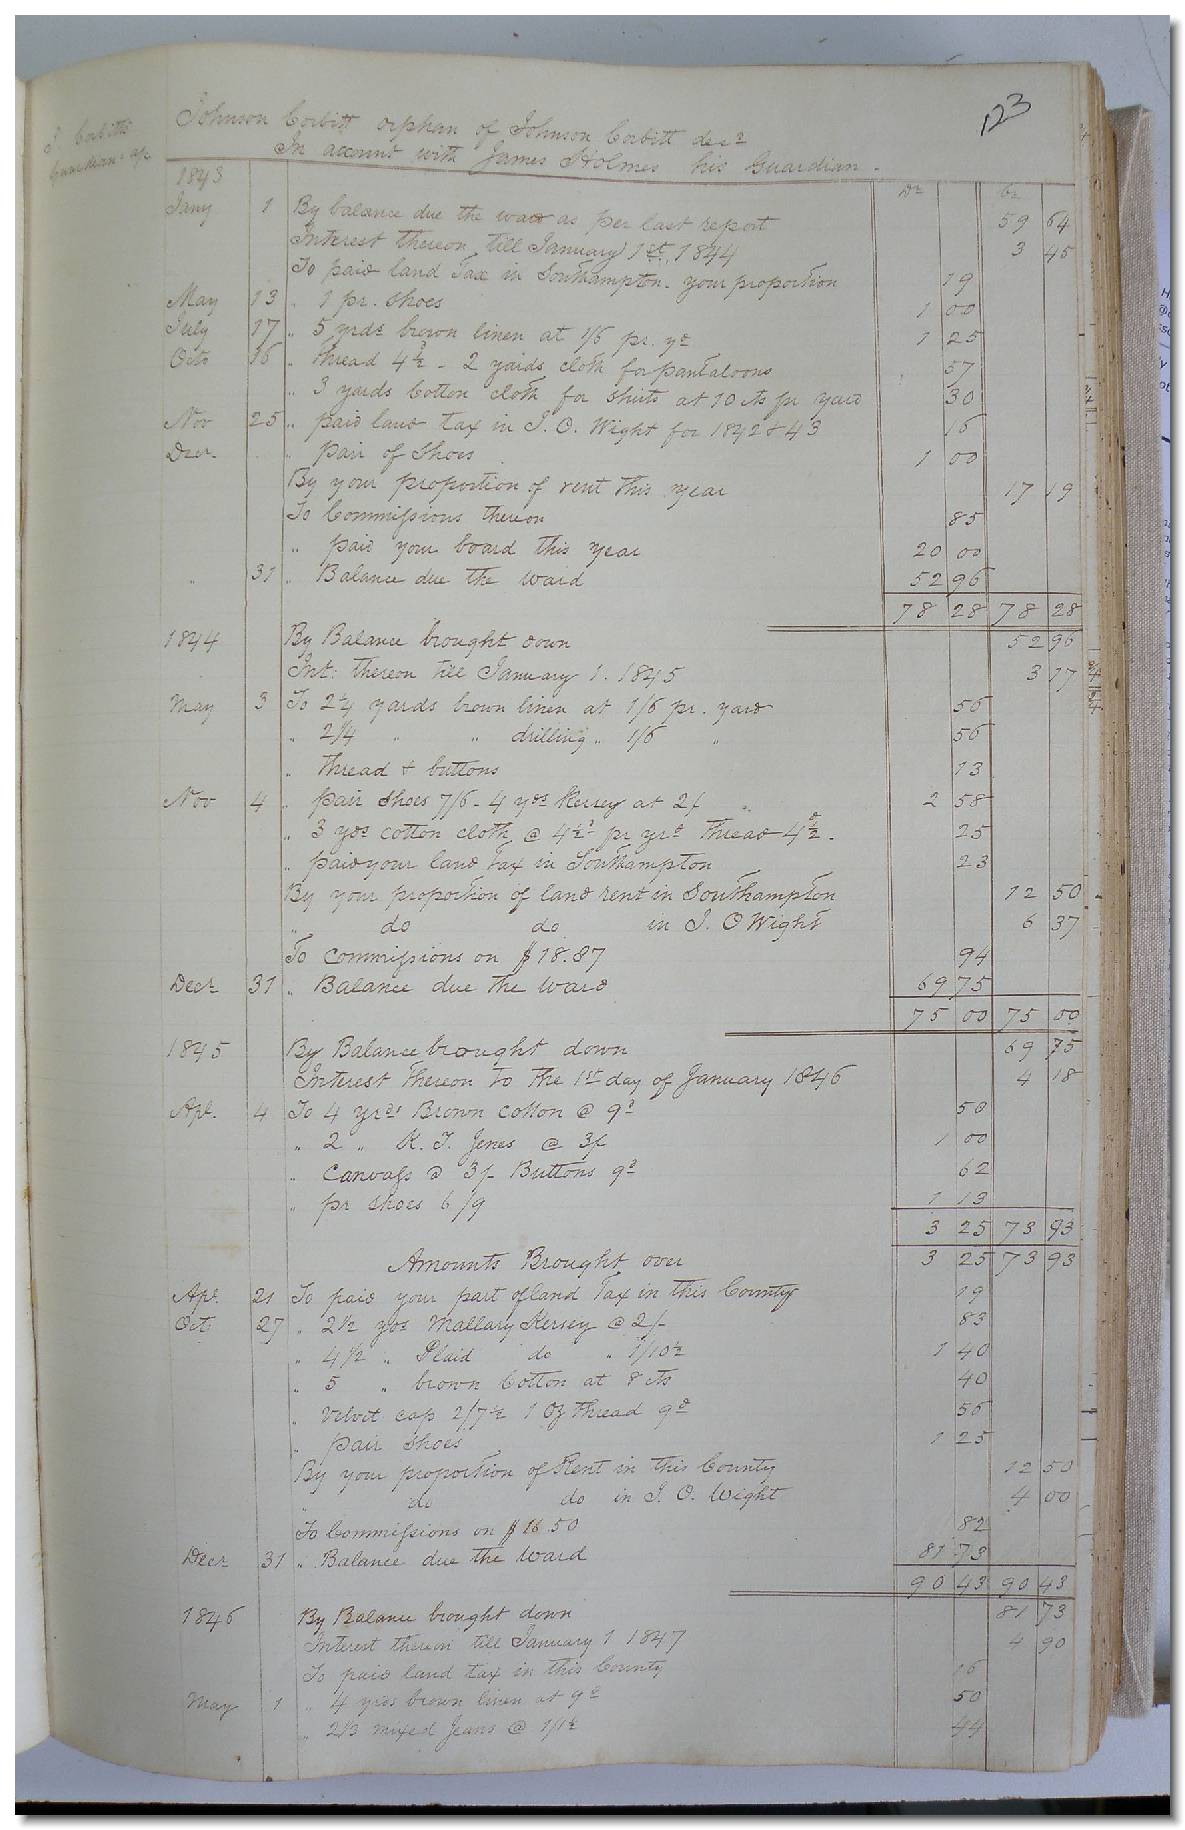 123
J. Corbitts
Guardian a/c
Johnson Corbitt orphan of Johnson Corbitt decd
In account with James Holmes his Guardian.
1843 Dr Cr
Jany 1 By balance due the ward as per last report 59 64
Interest thereon till January 1st, 1844 3 45
To paid land Tax in Southampton your proportion 19
May 13 " 1 pr. shoes 1 00
July 17 " 5 yrds brown linen at 1/6 pr. yd 1 25
Octo 16 " thread 4½d - 2 yards cloth for pantaloons 57
" 3 yards Cotton cloth for shirts at 10 cts pr yard 30
Nov 25 " paid land tax in I. O. Wight for 1842 & 43 16
Decr. " pair of Shoes 1 00
By your proportion of rent this year 17 19
To Commissions thereon 85
" paid your board this year 20 00
" 31 " Balance due the ward 52 96
78 28 78 28
1844 By Balance brought down 52 96
Int: thereon till January 1. 1845 3 17
May 3 To 2¼ yards brown linen at 1/6 pr. yard 56
" 2¼ " " drilling " 1/6 " 56
" Thread & buttons 13
Nov 4 " pair shoes 7/6 - 4 yds Kersey at 2/ " 2 58
" 3 yds cotton cloth @ 4½d pr yrd thread 4½d. 25
" paid your land Tax in Southampton 23
By your proportion of land rent in Southampton 12 50
" do do in I. O Wight 6 37
To Commissions on $18.87 94
Decr 31 " Balance due the ward 69 75
75 00 75 00
1845 By Balance brought down 69 75
Interest Thereon To The 1st day of January 1846 4 18
Apl. 4 To 4 yrds Brown cotton @ 9d 50
" 2 " K. J. Jenes @ 3/ 1 00
" Canvass @ 3/ Buttons 9d 62
" pr shoes 6/9 1 13
3 25 73 93
Amounts Brought over 3 25 73 93
Apl. 21 To paid your part of land Tax in this County 19
Oct 27 " 2½ yds Mallary Kersey @ 2/- 83
" 4½ " Plaid do " 1/10½ 1 40
" 5 " brown Cotton at 8 cts 40
" Velvet cap 2/7½ 1 Oz thread 9d 56
" pair shoes 1 25
By your proportion of Rent in this County 12 50
" do do in I. O. Wight 4 00
To Commissions on $16.50 82
Decr 31 " Balance due the ward 81 73
90 43 90 43
1846 By Balance brought down 81 73
Interest thereon till January 1 1847 4 90
To paid land tax in this County 16
May 1 " 4 yrds brown linen at 9d 50
" 2⅓ mixed Jeans @ 1/1½ 44